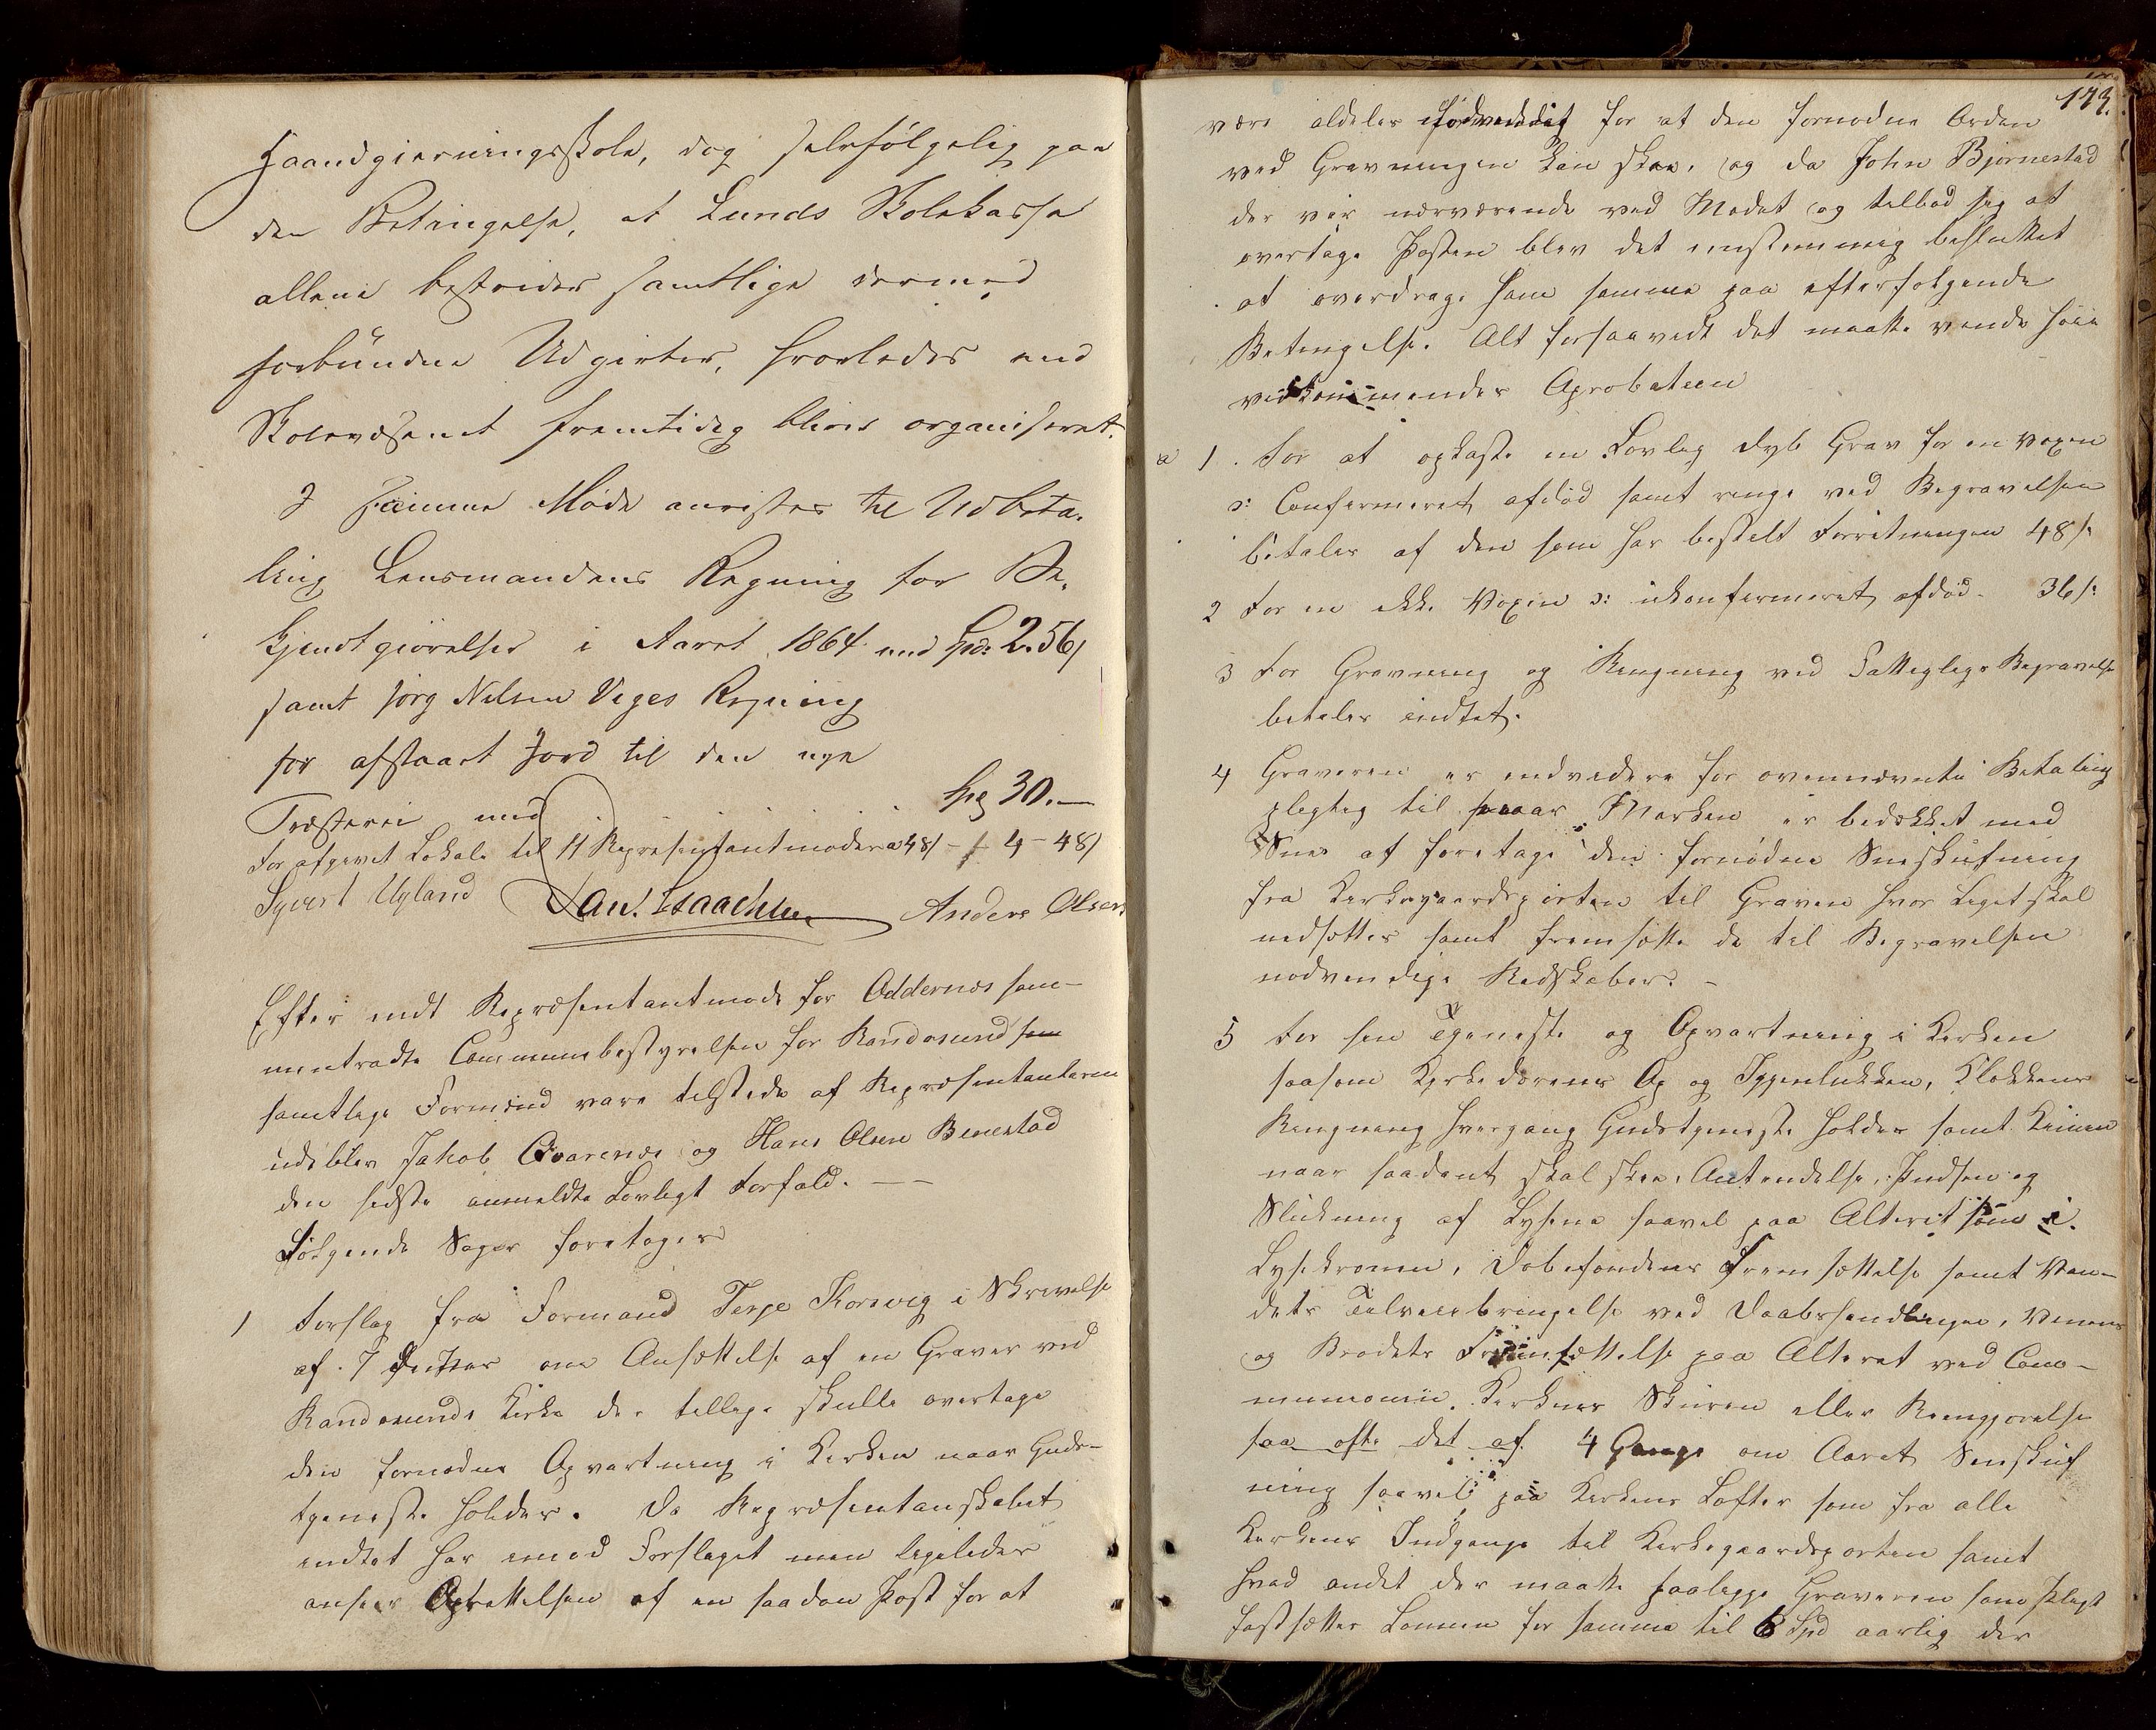 Haandgjerningsskole, dog selvfølgelig paa
den Betingelse, at Lunds Skolekasse
allene bestrider samtlige dermed
forbundne Udgivter, hvorledes end
Skolevæsenet fremtidig bliver organiseret.
I samme Møde anvistes til Udbeta-
ling Lensmandens Regning for Be-
kjendtgjørelser i Aaret 1864 med Spd: 2.56/
samt Jørg Nilsen Viges Regning
for afstaaet Jord til den nye
Præstevei med Spd 30.—
For afgivet Lokale til 11 Representantmøder a 48/ - / 4 - 48/
Syvert Ugland Dan. Isaachsen Anders Olsen
Efter endt Repræsentantmøde for Oddernes sam-
mentradte Communebestyrelsen for Randøsund
samtlige Formænd vare tilstede af Repræsentanterne
udeblev Jakob Qvarenes og Hans Olsen Benestad
den sidste anmeldte Lovligt Forfald. — —
Følgende Sager foretoges
1 Forslag fra Formand Terje Korsvig i Skrivelse
af 7 om Ansættelse af en Graver ved
Randøsunds Kirke der tillige skulle overtage
den fornødne Opvartning i Kirken naar Guds-
tjeneste holdes. Da Repræsentanskabet
indtet har imod Forslaget men ligeledes
anseer Oprettelsen af en saadan Post for at
173.
være aldeles nødvendig for at den fornødne Orden
ved Gravningen kan skee, og da John Bjørnestad
der var nærværende ved Mødet og tilbød sig at
overtage Posten blev det enstemmig besluttet
at overdrage ham samme paa efterfølgende
Betingelse. Alt forsaavidt det maatte vinde høie
vedkommendes Aprobation
a 1. For at opkaste en Lovlig dyb Grav for en voxen
ɔ: Confirmeret afdød samt ringe ved Begravelsen
betales af den som har bestilt Forretningen 48/:
2 For en ikke Voxen ɔ: ukonfirmeret afdød - 36/:
3 For Gravning og Ringning ved Fattigligs Begravelse
betales indtet.
4 Graveren er endvidere for ovennævnte Betaling
pligtig til naar Marken er bedækket med
Snee at foretage den fornødne Sneskufning
fra Kirkegaardsporten til Graven hvor Liget skal
nedsættes samt fremsætte de til Begravelsen
nødvendige Redskaber. -
5 For sin Tjeneste og Opvartning i Kirken
saasom Kirkedørens Op og Igjenlukken, Klokkens
Ringning hvergang Gudstjeneste holdes samt Kimen
naar saadant skal skee, Antendelse, Pudsen og
Slukning af Lysene saavel paa Alteret som i
Lysekronen, Døbefondens Fremsættelse samt Van-
dets Tilveiebringelse ved Daabshandlingen, Vinens
og Brødets Fremsættelse paa Alteret ved Com-
munionen. Kirkens Skuren eller Rengjørelse
saa ofte det af 4 Gange om Aaret Sneskuf
ning saavel paa Kirkens Lofter som fra alle
Kirkens Indgange til Kirkegaardsporten samt
hvad andet der maatte paaligge Graveren som Pligt
fastsættes Lønnen for samme til 6 Spd aarlig der